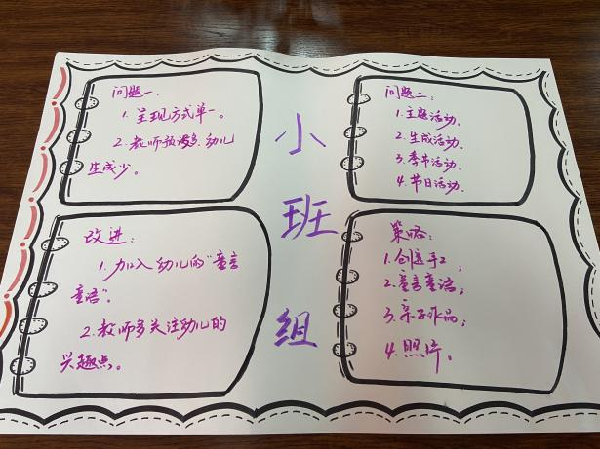 问题一.
1. 呈现方式单一。
2. 教师预设多, 幼儿
生成少。
小
班
组
问题二:
1. 主题活动.
2. 生成活动.
3. 季节活动.
4. 节日活动.
改进:
1. 加入幼儿的“童言
童语”。
2. 教师多关注幼儿的
兴趣点。
策略:
1. 创意手工
2. 童言童语;
3. 亲子作品;
4. 照片。